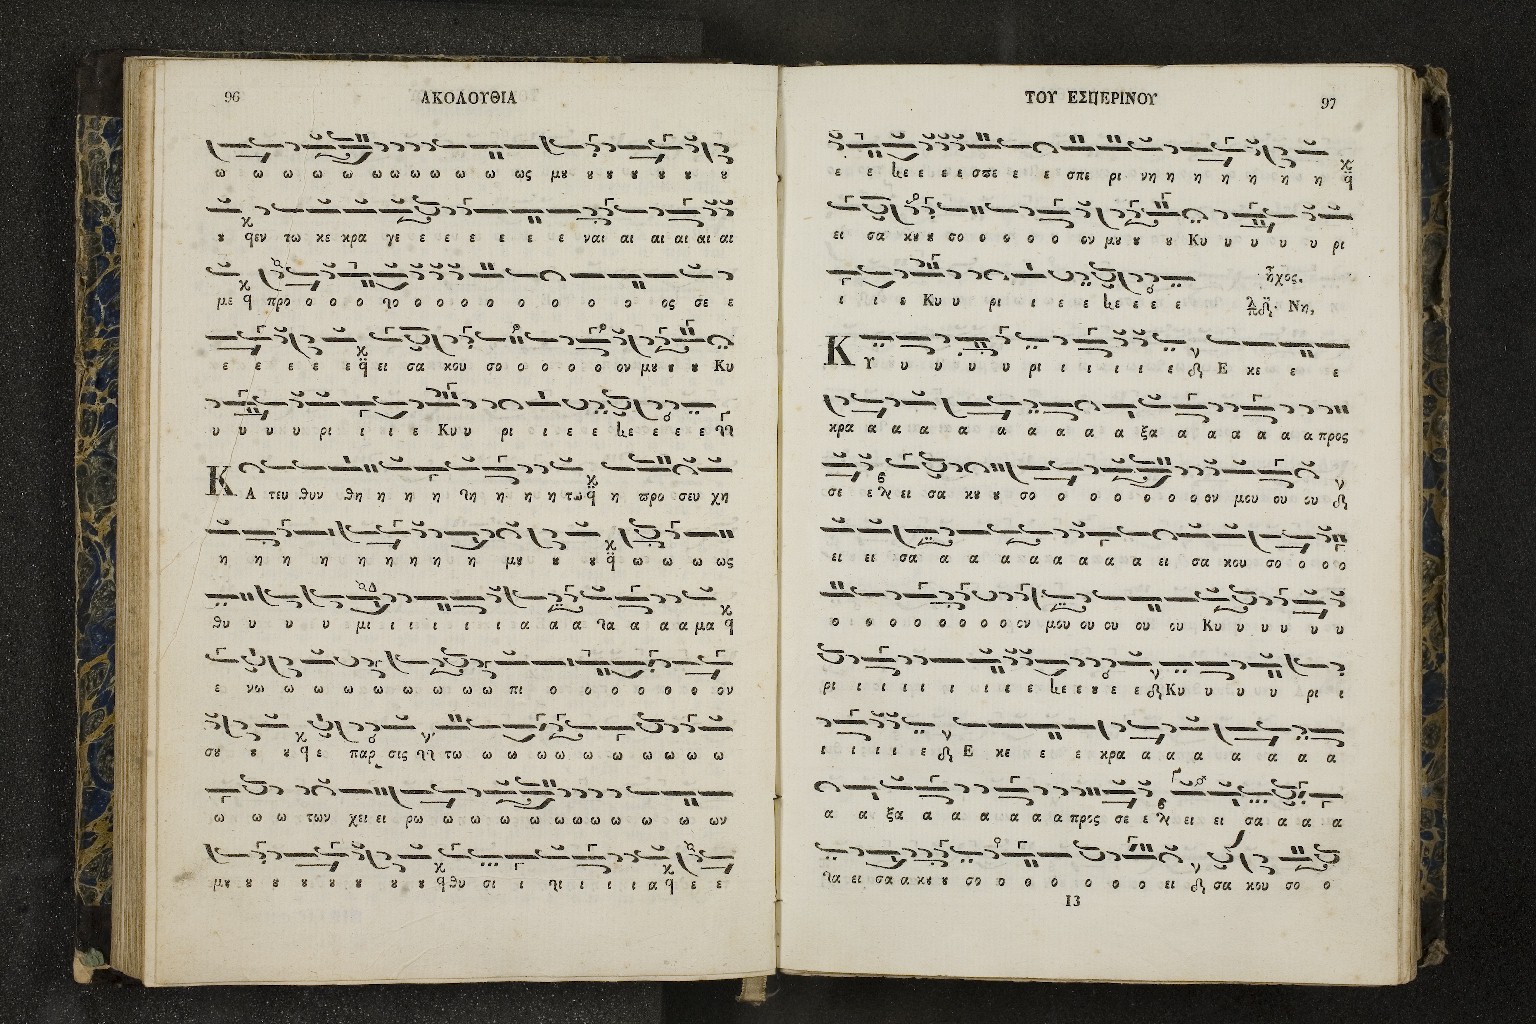 96
ΑΚΟΛΟΥΘΙΑ
ω ω ω ω ω ω ω ω ω ω ω ως μȣ ȣ ȣ ȣ ȣ ȣ ȣ
ȣ εν τω κε κρα γε ε ε ε ε ε ε ναι αι αι αι αι αι
με προ ο ο ο ο ο ο ο ο ο ο ο ο ος σε ε
ε ε ε ε ε ει σα κου σο ο ο ο ο ον μȣ ȣ ȣ Κυ
υ υ υ υ ρι ι ι ε Κυ υ ρι ι ε ε ε ε ε ε
ΚΑ τευ θυν θη η η η η η η τω η προ σευ χη
η η η η η η η η η μȣ ȣ ȣ ω ω ω ως
θυ υ υ υ μι ι ι ι ι ι α α α α α α μα
ε νω ω ω ω ω ω ω ω ω πι ο ο ο ο ο ο ον
σȣ ȣ ȣ ε παρ σις τω ω ω ω ω ω ω ω ω ω
ω ω ω των χει ει ρω ω ω ω ω ω ω ω ω ω ων
μȣ ȣ ȣ ȣ ȣ ȣ ȣ ȣ θυ σι ι ι ι ι ι α ε ε
ΤΟΥ ΕΣΠΕΡΙΝΟΥ
97
ε ε ε ε ε ε σπε ε ε σπε ρι νη η η η η η η η
ει σα κȣ ȣ σο ο ο ο ο ον μȣ ȣ ȣ Κυ υ υ υ υ ρι
ι ι ε Κυ υ ρι ι ε ε ε ε ε ε ἦχος. Νη,
ΚΥ υ υ υ υ ρι ι ι ι ι ε Ε κε ε ε
κρα α α α α α α α α α ξα α α α α α α προς
σε ε ει σα κȣ ȣ σο ο ο ο ο ο ο ον μου ου ου
ει ει σα α α α α α α α α ει σα κου σο ο ο ο
ο ο ο ο ο ο ο ο ον μου ου ου ου ου Κυ υ υ υ υ υ
ρι ι ι ι ι ι ι ε ε ε ε ε ε ε Κυ υ υ υ υ ρι ι
ι ι ι ι ε Ε κε ε ε κρα α α α α α α α
α α ξα α α α α α α προς σε ε ει ει σα α α α
ει σα α κȣ ȣ σο ο ο ο ο ο ο ο ει σα κου σο ο
13